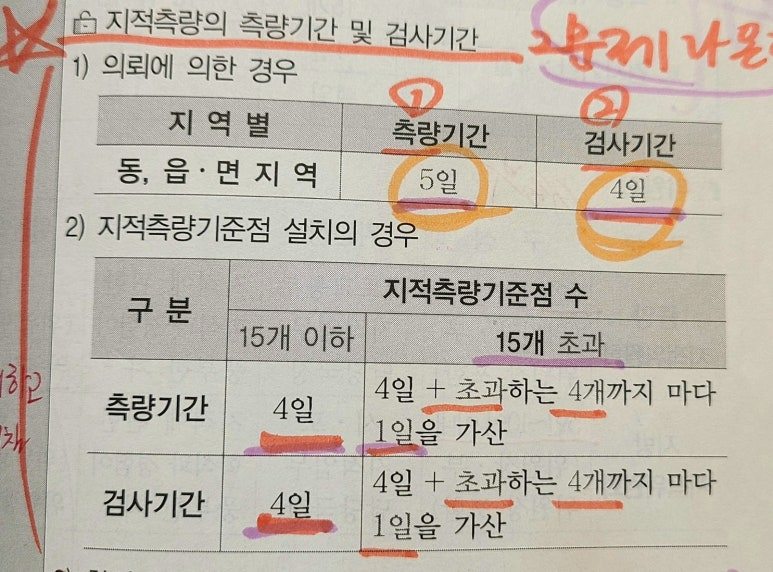 지적측량의 측량기간 및 검사기간
1) 의뢰에 의한 경우
① ②
지역별 측량기간 검사기간
동, 읍·면 지역 5일 4일
2) 지적측량기준점 설치의 경우
구분 지적측량기준점 수
15개 이하 15개 초과
측량기간 4일 4일 + 초과하는 4개까지 마다
1일을 가산
검사기간 4일 4일 + 초과하는 4개까지 마다
1일을 가산